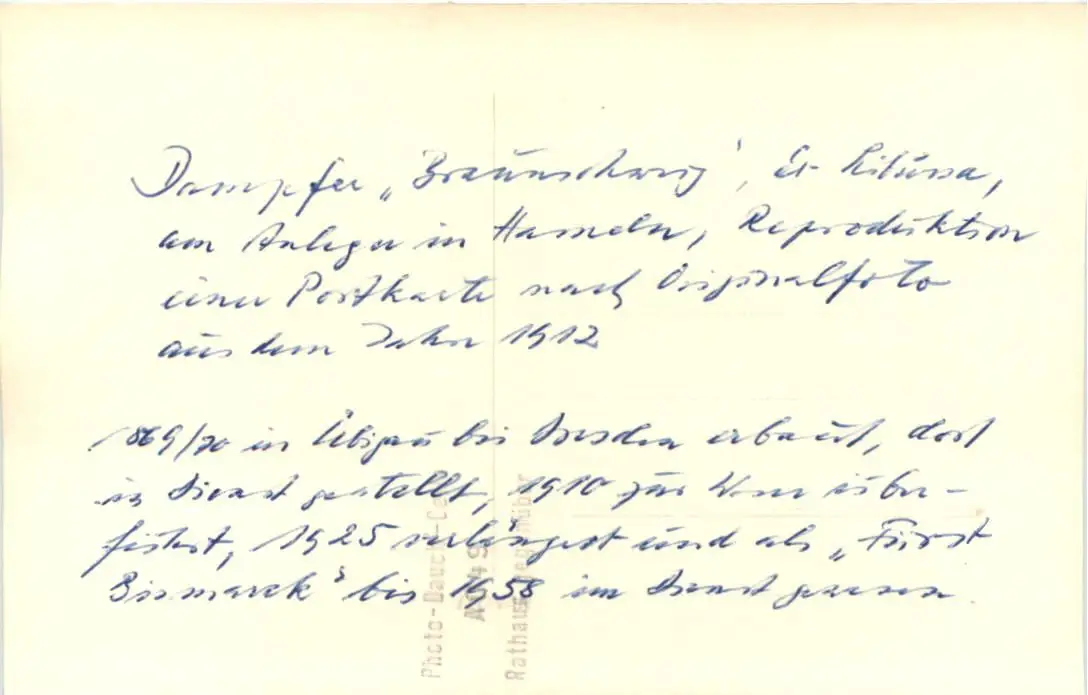 Dampfer „Braunschweig", Ex Libussa,
am Anleger in Hameln, Reproduktion
einer Postkarte nach Originalfoto
aus dem Jahre 1912
1869/70 in Übigau bei Dresden erbaut, dort
in Dienst gestellt, 1910 zur Weser über-
führt, 1925 verlängert und als „Fürst
Bismarck" bis 1958 im Dienst gewesen.
Photo-Dauch-Ca
Rathaus gegenüber